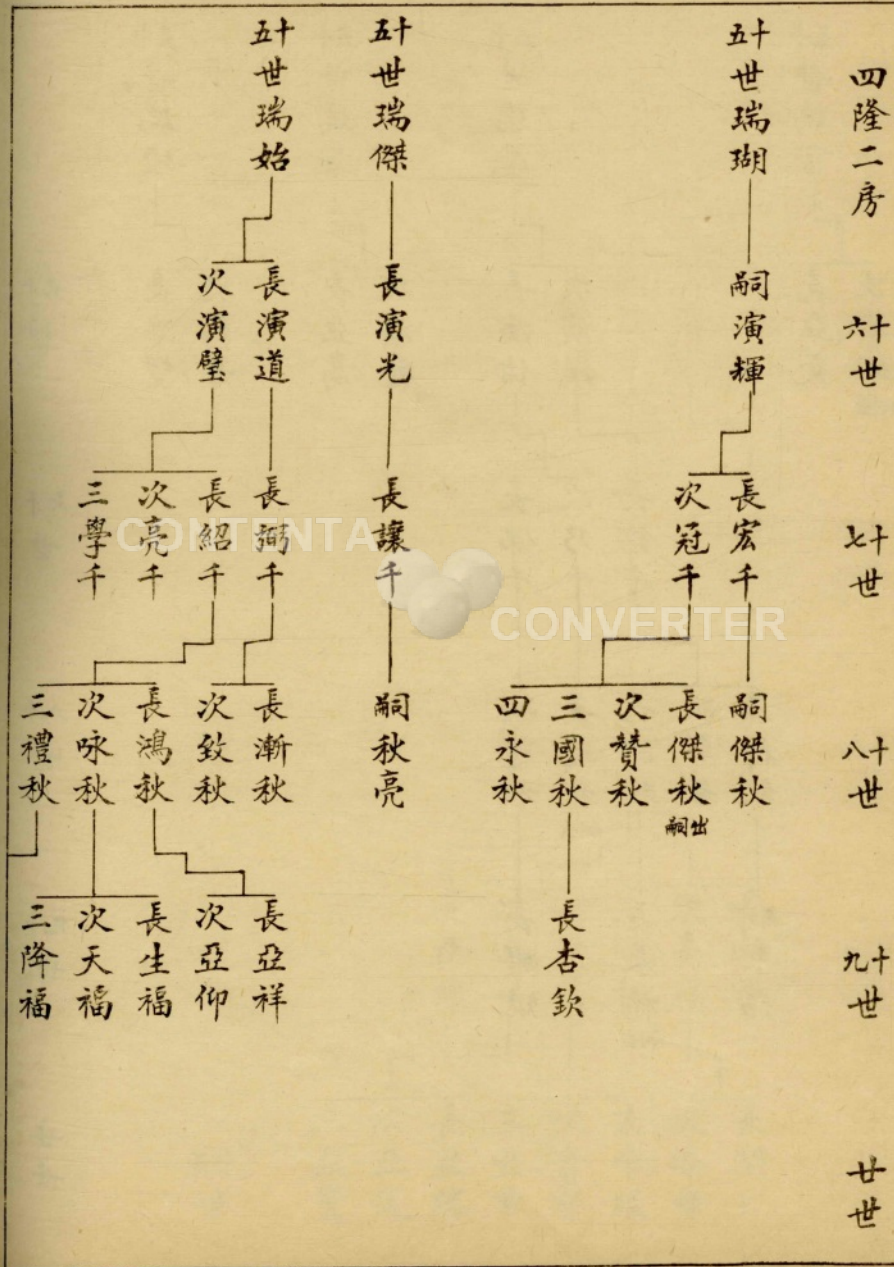 四隆二房
十六世
十七世
十八世
十九世
廿世
十五世瑞瑚
嗣演輝
長宏千
次冠千
嗣傑秋
長傑秋
出嗣
次贊秋
三國秋
四永秋
長杏欽
十五世瑞傑
長演光
長讓千
嗣秋亮
十五世瑞始
長演道
次演璧
長弼千
長紹千
次亮千
三學千
長漸秋
次致秋
長鴻秋
次咏秋
三禮秋
長亞祥
次亞仰
長生福
次天福
三降福
CONTENTA
CONVERTER